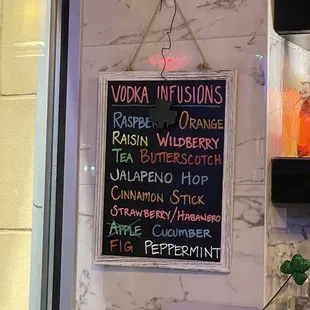 VODKA INFUSIONS
ORANGE
RAISIN WILDBERRY
TEA BUTTERSCOTCH
JALAPENO HOP
CINNAMON STICK
STRAWBERRY/HABANERO
APPLE CUCUMBER
FIG PEPPERMINT